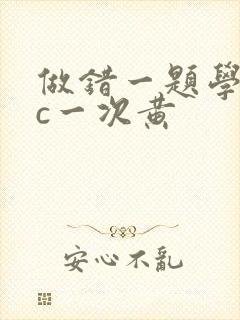 做錯一題學
c一次黃
安心不亂